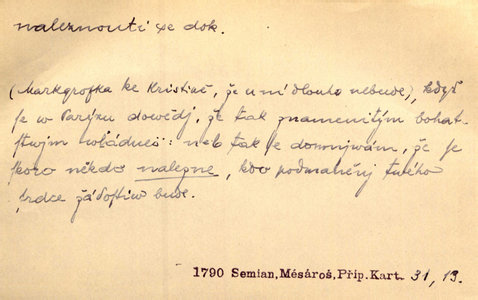 naleznouti se dok.
(Markgrofka ke Kristině, že u ní dlouho nebude), když
se w Paryzu dowědj, že tak znamenitým bohat-
stwjm wládneš: neb tak se domnjwám, že se
skoro někdo nalezne, kdo podmaněnj twého
srdce žádostiw bude.
1790 Semian, Mésároš, Příp. Kart. 31, 13.